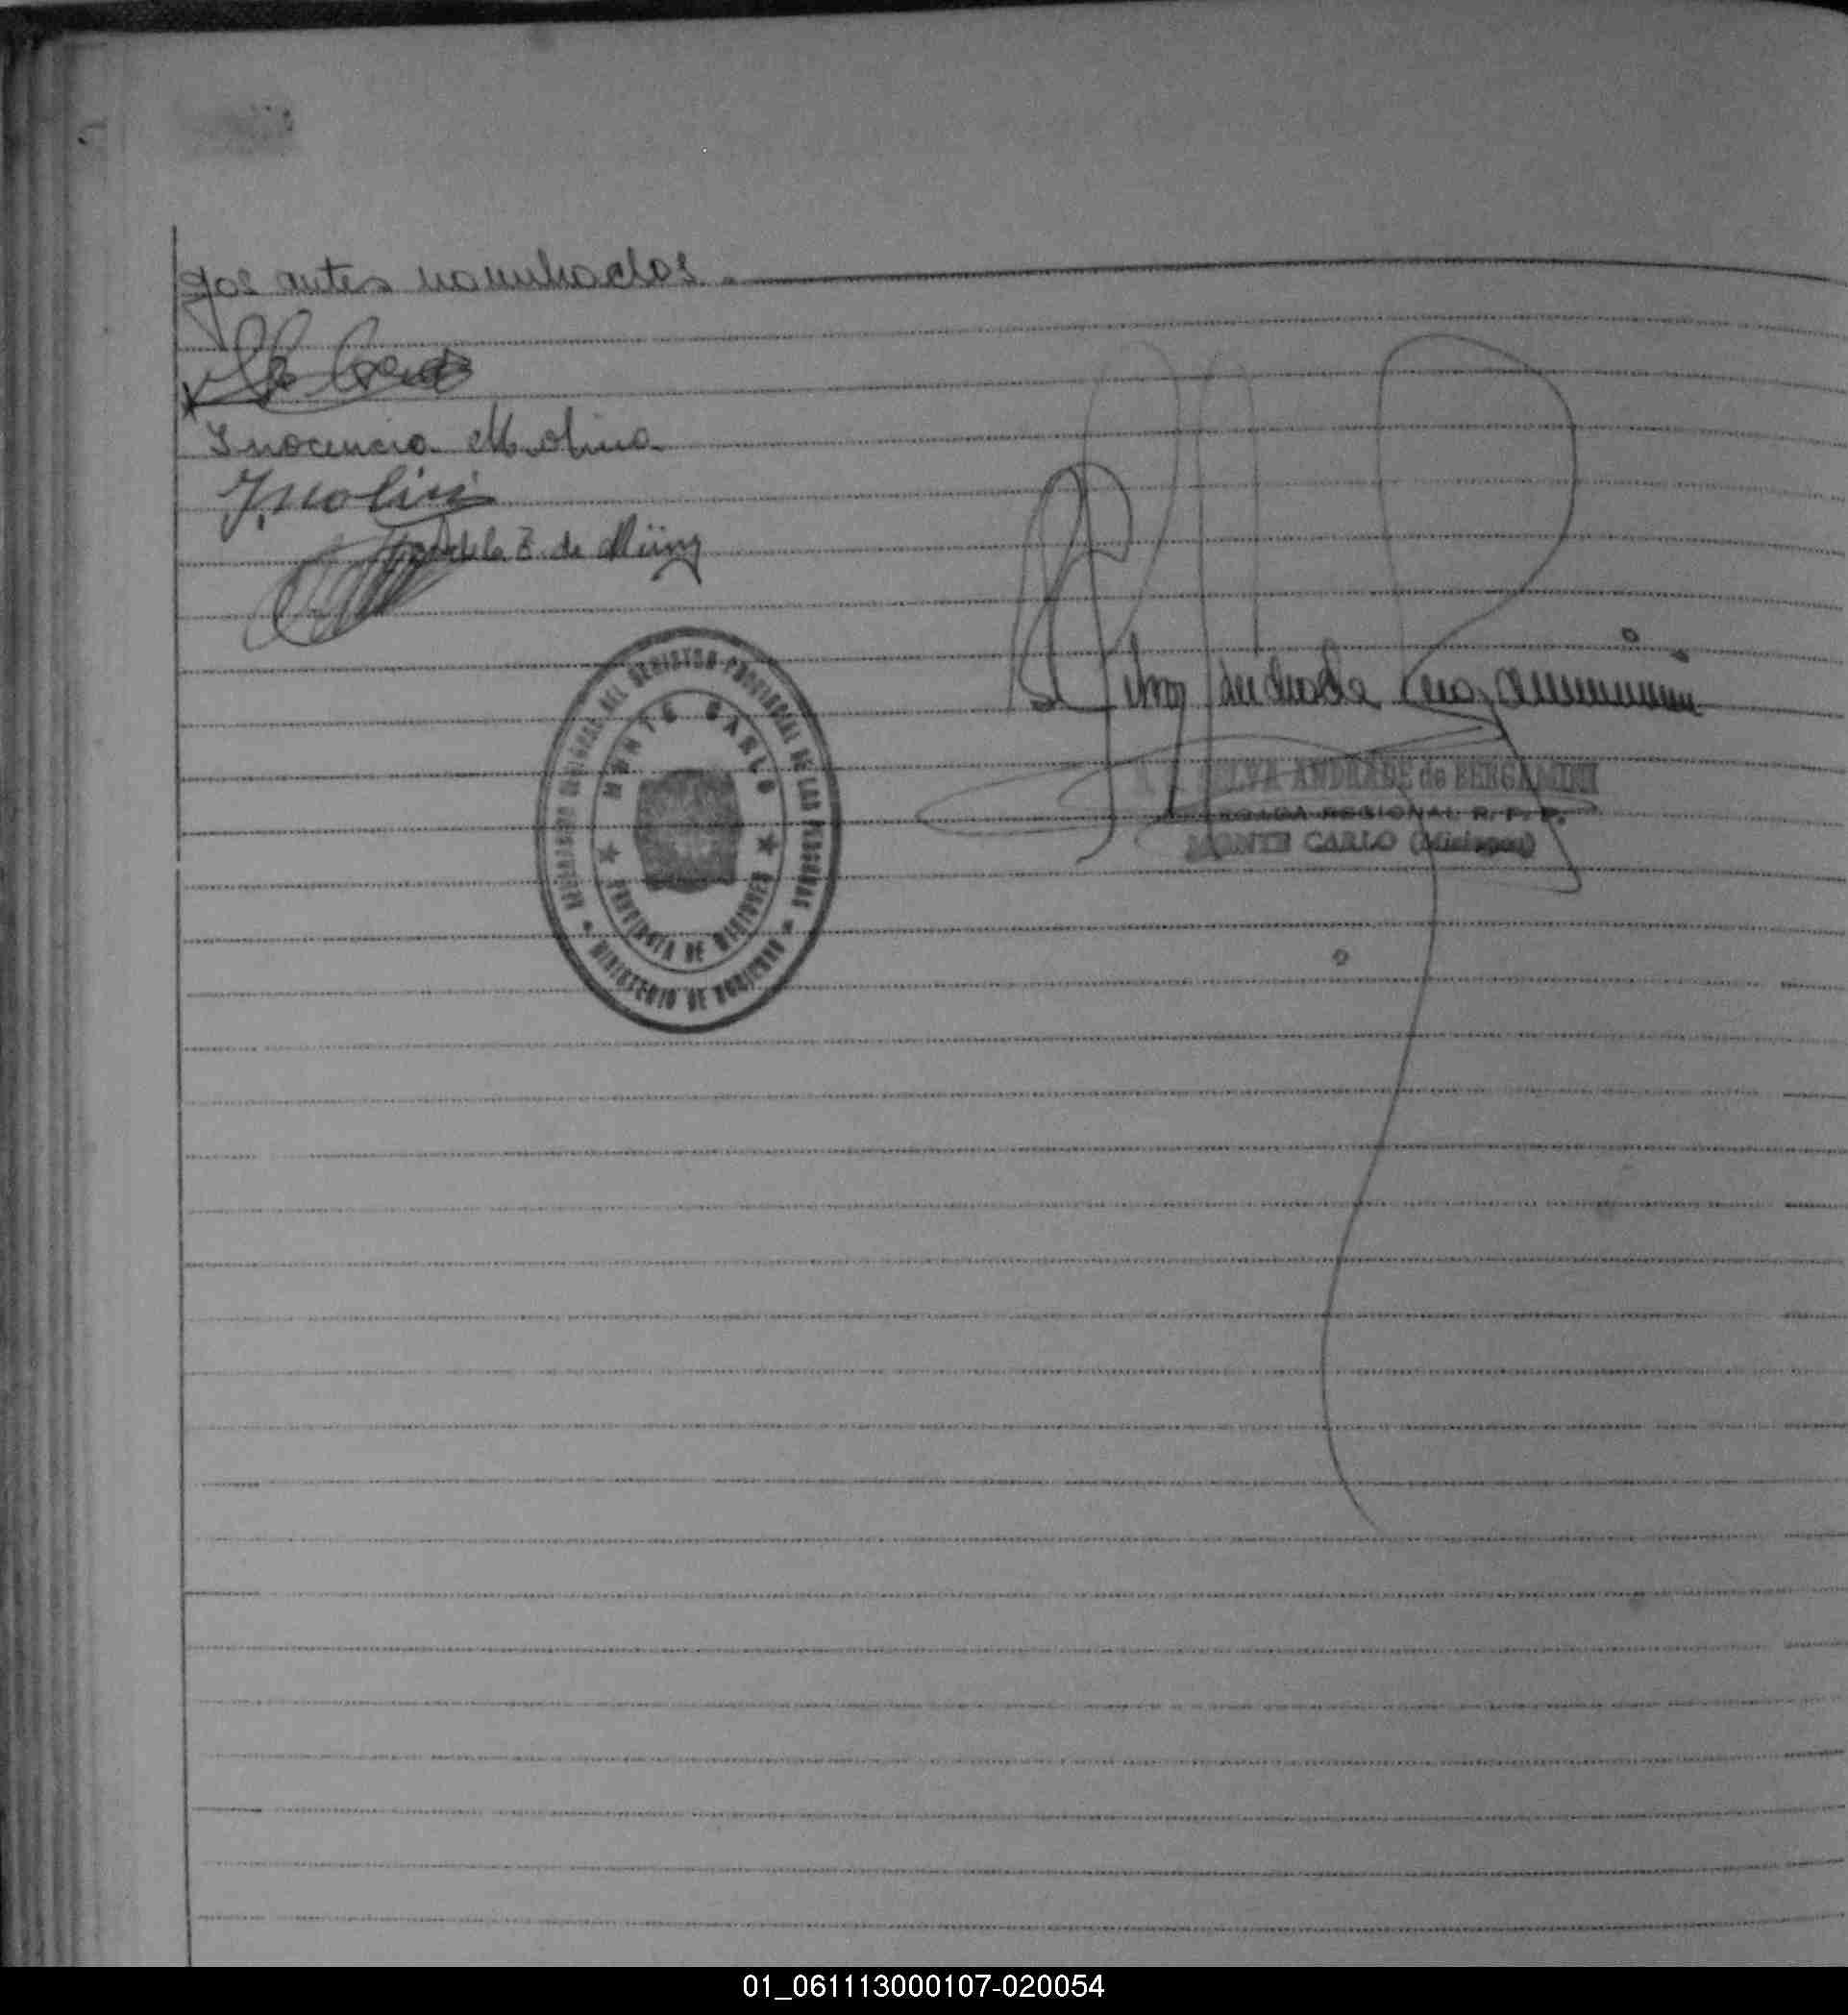 gos antes nombrados.
Inocencio Molina
J. Molina
Adela Z. de
DIRECCION GENERAL DEL REGISTRO PROVINCIAL DE LAS PERSONAS
MONTE CARLO
PROVINCIA DE MISIONES
MINISTERIO DE GOBIERNO
Silva Andrade
SILVA ANDRADE de BERGAMINI
DELEGADA REGIONAL R. P. P.
MONTE CARLO (Misiones)
01_061113000107-020054